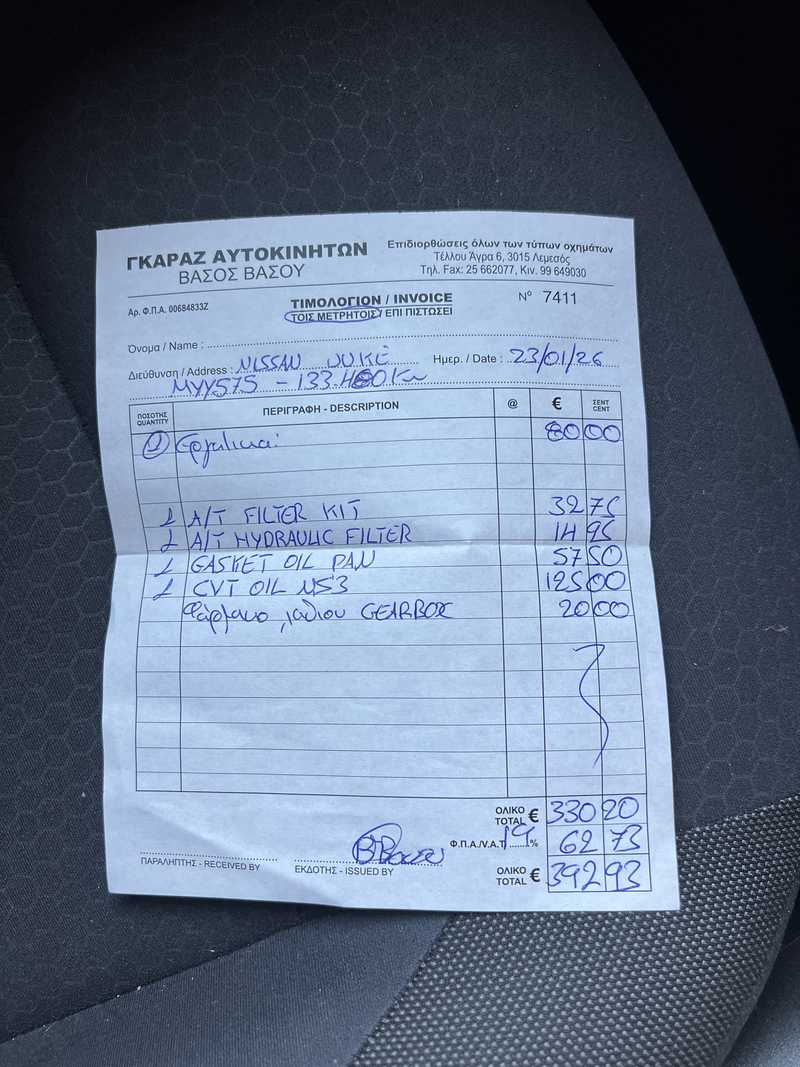 ΓΚΑΡΑΖ ΑΥΤΟΚΙΝΗΤΩΝ
ΒΑΣΟΣ ΒΑΣΟΥ
Επιδιορθώσεις όλων των τύπων οχημάτων
Τέλλου Άγρα 6, 3015 Λεμεσός
Τηλ. Fax: 25 662077, Κιν. 99 649030
Αρ. Φ.Π.Α. 00684833Z
ΤΙΜΟΛΟΓΙΟΝ / INVOICE
ΤΟΙΣ ΜΕΤΡΗΤΟΙΣ / ΕΠΙ ΠΙΣΤΩΣΕΙ
Nº 7411
Όνομα / Name :
Διεύθυνση / Address : NISSAN JUKE
Ημερ. / Date : 23/01/26
MYY575 -
ΠΟΣΟΤΗΣ QUANTITY ΠΕΡΙΓΡΑΦΗ - DESCRIPTION @ € ΣΕΝΤ CENT
1 Εργατικα: 80 00
1 A/T FILTER KIT 32 75
1 A/T HYDRAULIC FILTER 14 95
1 GASKET OIL PAN 57 50
1 CVT OIL NS3 125 00
Φάρμακο λαδιου GEARBOX 20 00
ΟΛΙΚΟ TOTAL € 330 20
Φ.Π.Α./V.A.T. 19 % 62 73
ΟΛΙΚΟ TOTAL € 392 93
ΠΑΡΑΛΗΠΤΗΣ - RECEIVED BY
ΕΚΔΟΤΗΣ - ISSUED BY